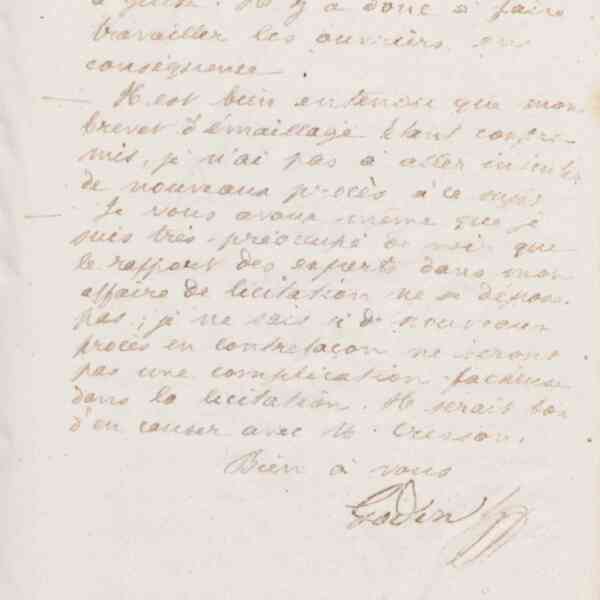 à Guise. Il y a donc à faire
travailler les ouvriers en
conséquence.
— Il est bien entendu que mon
brevet d'émaillage étant compro-
mis, je n'ai pas à aller intenter
de nouveaux procès à ce sujet.
— Je vous avoue même que je
suis très préoccupé de voir que
le rapport des experts dans mon
affaire de licitation ne se dépose
pas; je ne sais si de nouveaux
procès en contrefaçon ne seront
pas une complication fâcheuse
dans la licitation. Il serait bon
d'en causer avec M. Cresson.
Bien à vous
Godin